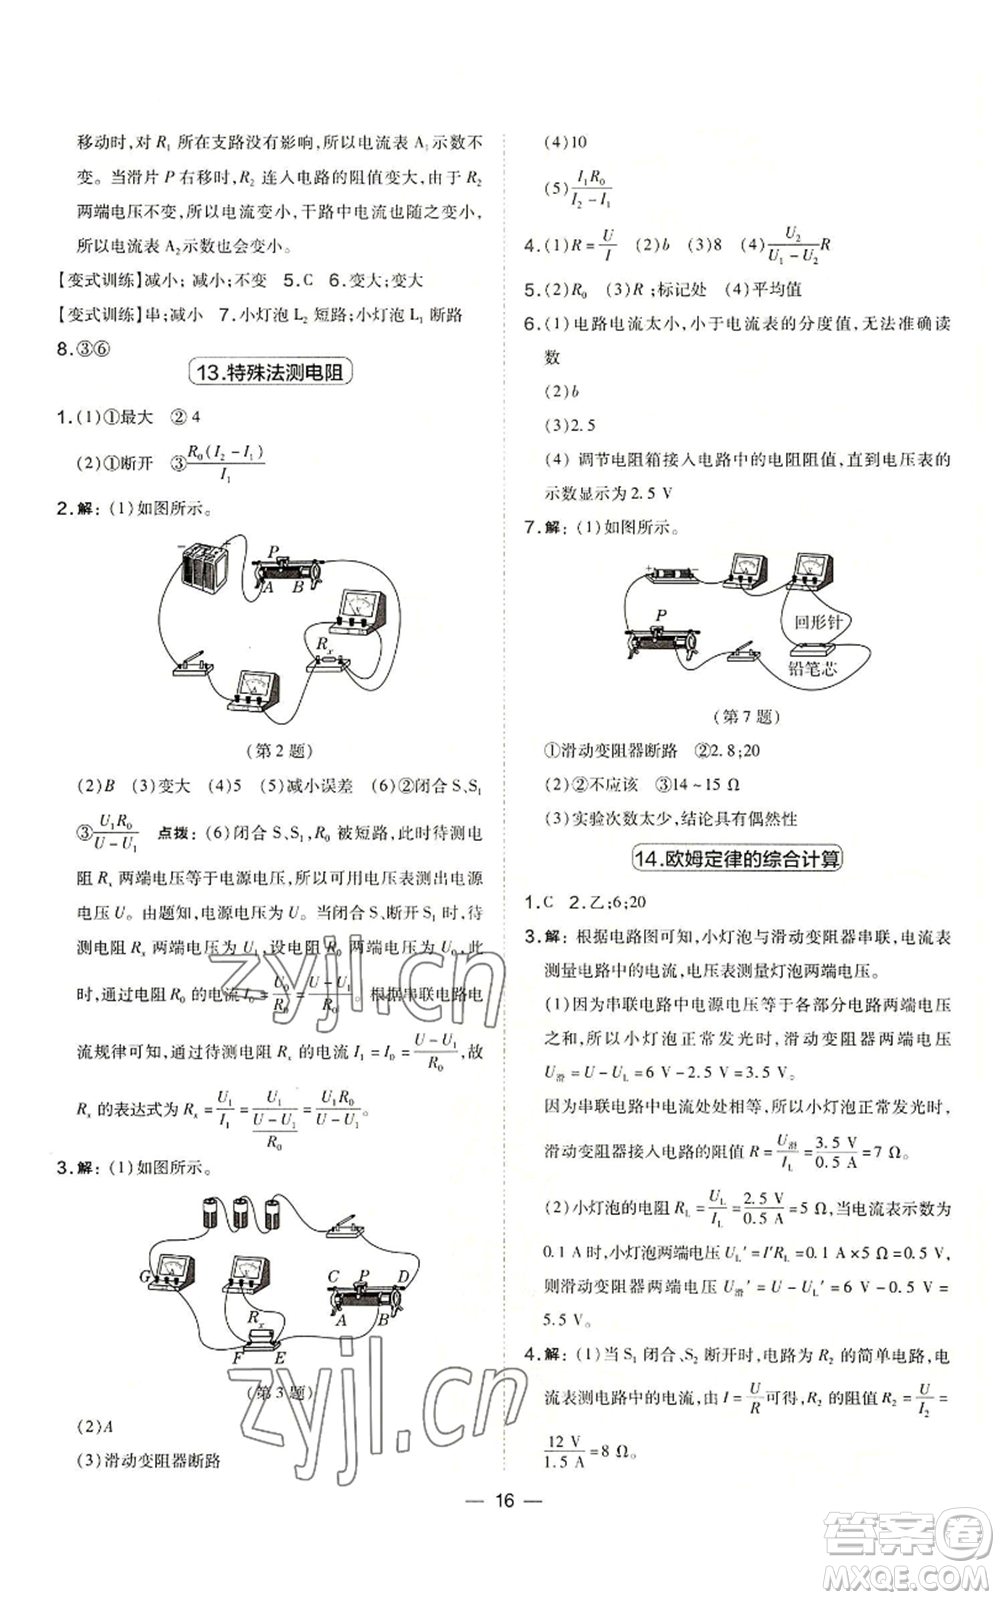 移动时,对 R₁ 所在支路没有影响,所以电流表 A₁示数不
变。当滑片 P 右移时,R₂ 连入电路的阻值变大,由于 R₂
两端电压不变,所以电流变小,干路中电流也随之变小,
所以电流表 A₂示数也会变小。
【变式训练】减小;减小;不变 5.C 6.变大;变大
【变式训练】串;减小 7.小灯泡 L₂ 短路;小灯泡 L₁ 断路
8.③⑥
13.特殊法测电阻
1.(1)①最大 ②4
(2)①断开 ③R₀(I₂-I₁)/I₁
2.解:(1)如图所示。
- + P A B Rₓ
(第2题)
(2)B (3)变大 (4)5 (5)减小误差 (6)②闭合 S、S₁
③U₁R₀/(U-U₁) 点拨:(6)闭合 S、S₁,R₀ 被短路,此时待测电
阻 Rₓ 两端电压等于电源电压,所以可用电压表测出电源
电压 U。由题知,电源电压不变,当闭合 S、断开 S₁时,待
测电阻 Rₓ 两端电压为 U₁,设电阻 R₀ 两端电压为 U₀,此
时,通过电阻 R₀ 的电流 I₀=U₀/R₀=(U-U₁)/R₀。根据串联电路电
流规律可知,通过待测电阻 Rₓ 的电流 I₁=I₀=(U-U₁)/R₀,故
Rₓ 的表达式为 Rₓ=U₁/I₁=U₁/((U-U₁)/R₀)=U₁R₀/(U-U₁)。
3.解:(1)如图所示。
G C P D A B Rₓ F E
(第3题)
(2)A
(3)滑动变阻器断路
(4)10
(5)I₁R₀/(I₂-I₁)
4.(1)R=U/I (2)b (3)8 (4)U₂/(U₁-U₂)R
5.(2)R₀ (3)R;标记处 (4)平均值
6.(1)电路电流太小,小于电流表的分度值,无法准确读
数
(2)b
(3)2.5
(4) 调节电阻箱接入电路中的电阻阻值,直到电压表的
示数显示为 2.5 V
7.解:(1)如图所示。
P 回形针
铅笔芯
(第7题)
①滑动变阻器断路 ②2.8;20
(2)②不应该 ③14~15 Ω
(3)实验次数太少,结论具有偶然性
14.欧姆定律的综合计算
1.C 2.乙;6;20
3.解:根据电路图可知,小灯泡与滑动变阻器串联,电流表
测量电路中的电流,电压表测量灯泡两端电压。
(1)因为串联电路中电源电压等于各部分电路两端电压
之和,所以小灯泡正常发光时,滑动变阻器两端电压
U滑=U-U_L=6 V-2.5 V=3.5 V。
因为串联电路中电流处处相等,所以小灯泡正常发光时,
滑动变阻器接入电路的阻值 R=U滑/I_L=3.5 V/0.5 A=7 Ω。
(2)小灯泡的电阻 R_L=U_L/I_L=2.5 V/0.5 A=5 Ω,当电流表示数为
0.1 A时,小灯泡两端电压 U_L'=I'R_L=0.1 A×5 Ω=0.5 V,
则滑动变阻器两端电压 U滑'=U-U_L'=6 V-0.5 V=
5.5 V。
4.解:(1)当 S₁ 闭合、S₂ 断开时,电路为 R₂ 的简单电路,电
流表测电路中的电流,由 I=U/R可得,R₂ 的阻值 R₂=U/I₂=
12 V/1.5 A=8 Ω。
— 16 —
zyjl.cn
zyjl.cn
答案卷
MXQE.COM